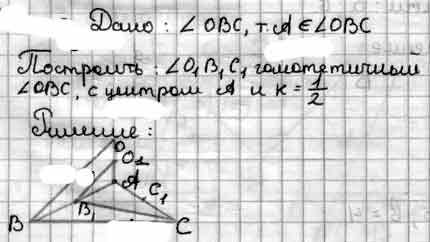 Дано : ∠ OBC, т. A ∈ ∠OBC
Построить : ∠O₁B₁C₁ гомотетичный
∠OBC, с центром A и к = 1/2
Решение :
O
O₁
A
C₁
B₁
B
C